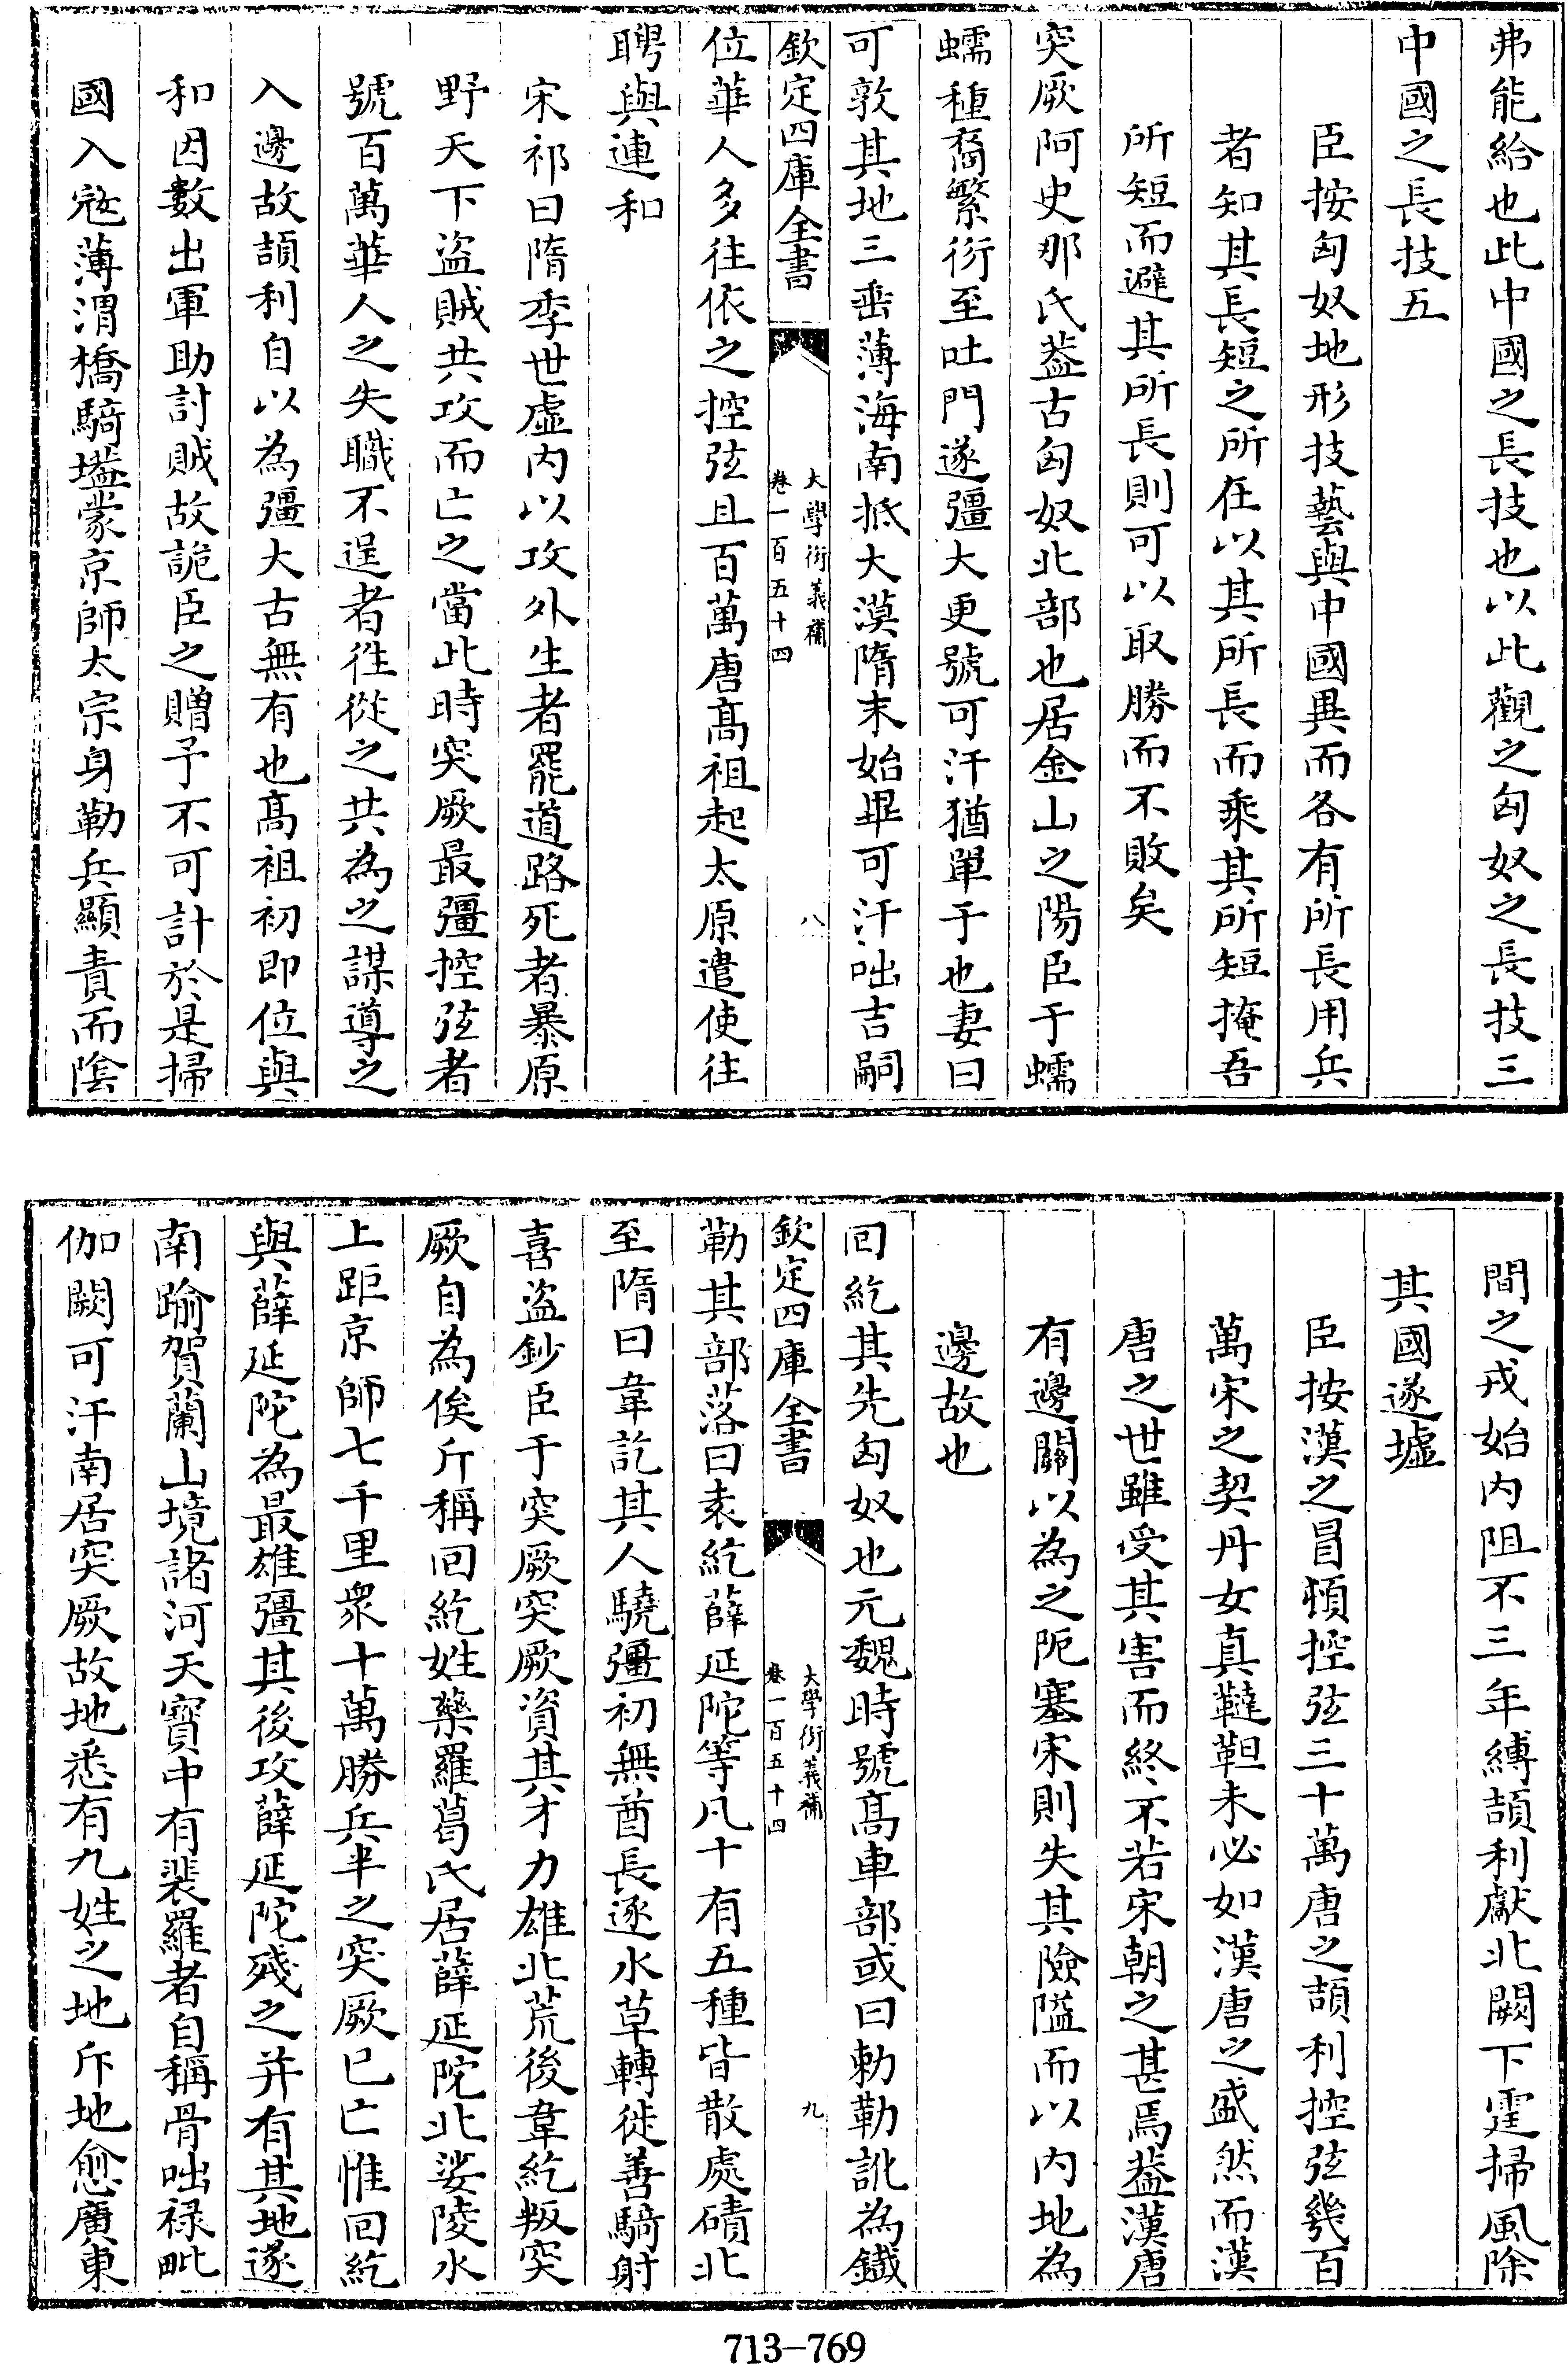 弗能給也此中國之長技也以此觀之匈奴之長技三
中國之長技五
臣按匈奴地形技藝與中國異而各有所長用兵
者知其長短之所在以其所長而乘其所短掩吾
所短而避其所長則可以取勝而不敗矣
突厥阿史那氏葢古匈奴北部也居金山之陽臣于蠕
蠕種裔繁衍至吐門遂彊大更號可汗猶單于也妻曰
可敦其地三垂薄海南抵大漠隋末始畢可汗咄吉嗣
欽定四庫全書
大學衍義補
卷一百五十四
八
位華人多往依之控弦且百萬唐髙祖起太原遣使往
聘與連和
宋祁曰隋季世虛内以攻外生者罷道路死者暴原
野天下盜賊共攻而亡之當此時突厥最彊控弦者
號百萬華人之失職不逞者徃從之共為之謀導之
入邊故頡利自以為彊大古無有也髙祖初即位與
和因數出軍助討賊故詭臣之贈予不可計於是掃
國入㓂薄渭橋騎壒蒙京師太宗身勒兵顯責而隂
間之戎始内阻不三年縛頡利獻北闕下霆掃風除
其國遂墟
臣按漢之冒頓控弦三十萬唐之頡利控弦幾百
萬宋之契丹女真韃靼未必如漢唐之盛然而漢
唐之世雖受其害而終不若宋朝之甚焉葢漢唐
有邊關以為之阨塞宋則失其險隘而以内地為
邊故也
回紇其先匈奴也元魏時號髙車部或曰勅勒訛為鐵
欽定四庫全書
大學衍義補
卷一百五十四
九
勒其部落曰袁紇薛延陀等凡十有五種皆散處磧北
至隋曰韋訖其人驍彊初無酋長逐水草轉徙善騎射
喜盜鈔臣于突厥突厥資其才力雄北荒後韋紇叛突
厥自為俟斤稱回紇姓藥羅葛氏居薛延陀北娑陵水
上距京師七千里衆十萬勝兵半之突厥已亡惟回紇
與薛延陀為最雄彊其後攻薛延陀殘之并有其地遂
南踰賀蘭山境諸河天寳中有裴羅者自稱骨咄禄毗
伽闕可汗南居突厥故地悉有九姓之地斥地愈廣東
713-769